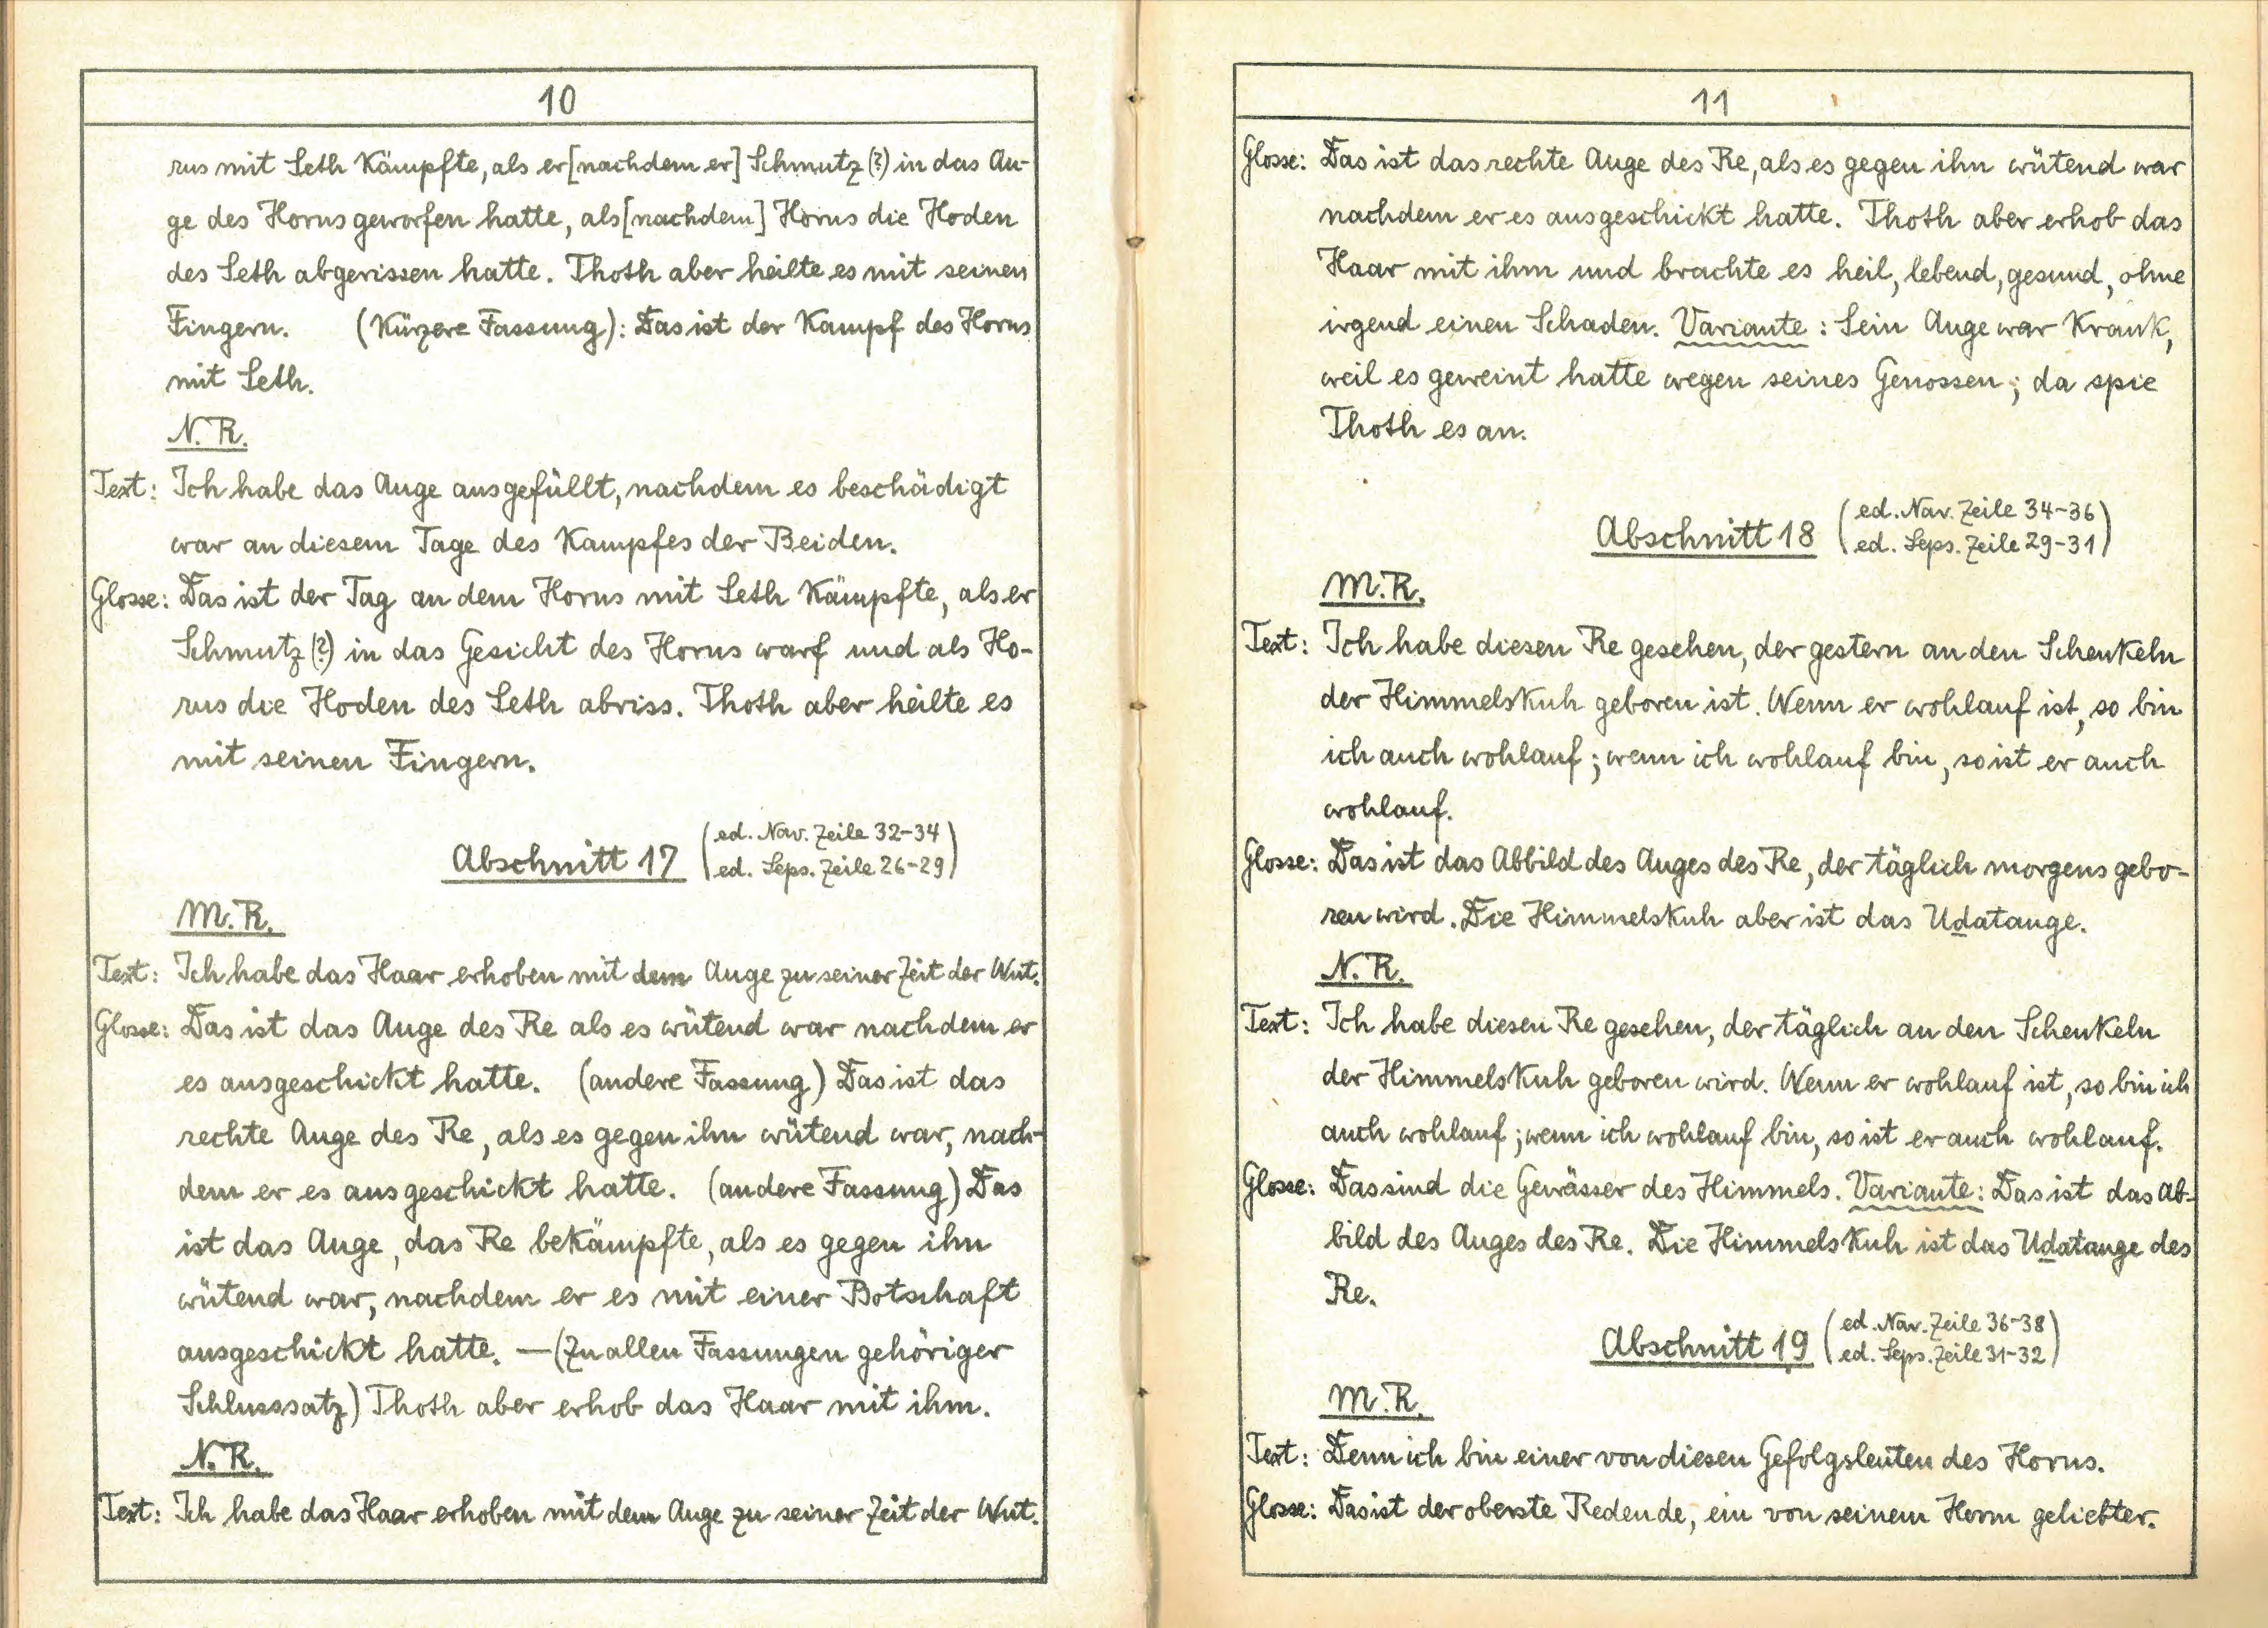 10
rus mit Seth kämpfte, als er [nachdem er] Schmutz (?) in das Au-
ge des Horus geworfen hatte, als [nachdem] Horus die Hoden
des Seth abgerissen hatte. Thoth aber heilte es mit seinen
Fingern. (Kürzere Fassung): Das ist der Kampf des Horus
mit Seth.
N.R.
Text: Ich habe das Auge ausgefüllt, nachdem es beschädigt
war an diesem Tage des Kampfes der Beiden.
Glosse: Das ist der Tag an dem Horus mit Seth kämpfte, als er
Schmutz (?) in das Gesicht des Horus warf und als Ho-
rus die Hoden des Seth abriss. Thoth aber heilte es
mit seinen Fingern.
Abschnitt 17 (ed. Nav. Zeile 32-34
ed. Leps. Zeile 26-29)
M.R.
Text: Ich habe das Haar erhoben mit dem Auge zu seiner Zeit der Wut.
Glosse: Das ist das Auge des Re als es wütend war nachdem er
es ausgeschickt hatte. (andere Fassung) Das ist das
rechte Auge des Re, als es gegen ihn wütend war, nach-
dem er es ausgeschickt hatte. (andere Fassung) Das
ist das Auge, das Re bekämpfte, als es gegen ihn
wütend war, nachdem er es mit einer Botschaft
ausgeschickt hatte. — (Zu allen Fassungen gehöriger
Schlusssatz) Thoth aber erhob das Haar mit ihm.
N.R.
Text: Ich habe das Haar erhoben mit dem Auge zu seiner Zeit der Wut.
11
Glosse: Das ist das rechte Auge des Re, als es gegen ihn wütend war
nachdem er es ausgeschickt hatte. Thoth aber erhob das
Haar mit ihm und brachte es heil, lebend, gesund, ohne
irgend einen Schaden. Variante: Sein Auge war krank,
weil es geweint hatte wegen seines Genossen; da spie
Thoth es an.
Abschnitt 18 (ed. Nav. Zeile 34-36
ed. Leps. Zeile 29-31)
M.R.
Text: Ich habe diesen Re gesehen, der gestern an den Schenkeln
der Himmelskuh geboren ist. Wenn er wohlauf ist, so bin
ich auch wohlauf; wenn ich wohlauf bin, so ist er auch
wohlauf.
Glosse: Das ist das Abbild des Auges des Re, der täglich morgens gebo-
ren wird. Die Himmelskuh aber ist das Uḏatauge.
N.R.
Text: Ich habe diesen Re gesehen, der täglich an den Schenkeln
der Himmelskuh geboren wird. Wenn er wohlauf ist, so bin ich
auch wohlauf; wenn ich wohlauf bin, so ist er auch wohlauf.
Glosse: Das sind die Gewässer des Himmels. Variante: Das ist das Ab-
bild des Auges des Re. Die Himmelskuh ist das Uḏatauge des
Re.
Abschnitt 19 (ed. Nav. Zeile 36-38
ed. Leps. Zeile 31-32)
M.R.
Text: Denn ich bin einer von diesen Gefolgsleuten des Horus.
Glosse: Das ist der oberste Redende, ein von seinem Herrn geliebter.